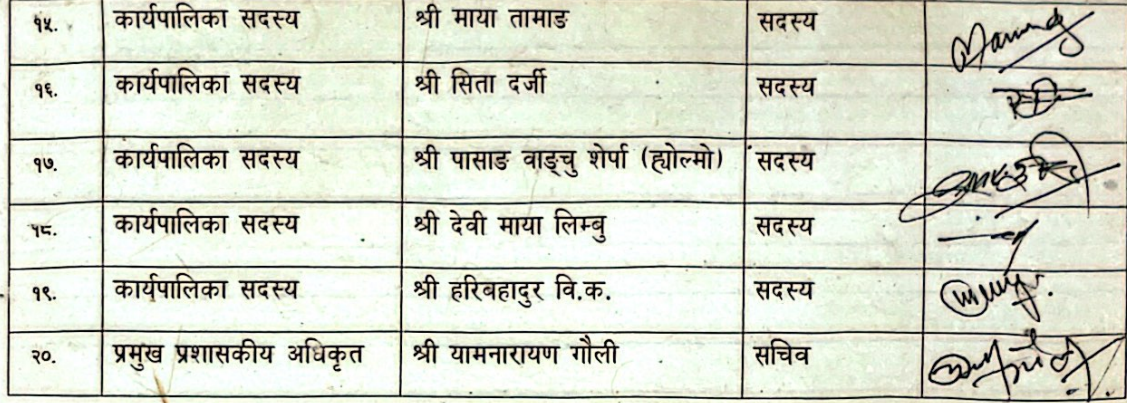 १५. कार्यपालिका सदस्य श्री माया तामाङ सदस्य
१६. कार्यपालिका सदस्य श्री सिता दर्जी सदस्य
१७. कार्यपालिका सदस्य श्री पासाङ वाङ्चु शेर्पा (ह्योल्मो) सदस्य
१८. कार्यपालिका सदस्य श्री देवी माया लिम्बु सदस्य
१९. कार्यपालिका सदस्य श्री हरिबहादुर वि.क. सदस्य
२०. प्रमुख प्रशासकीय अधिकृत श्री यामनारायण गौली सचिव